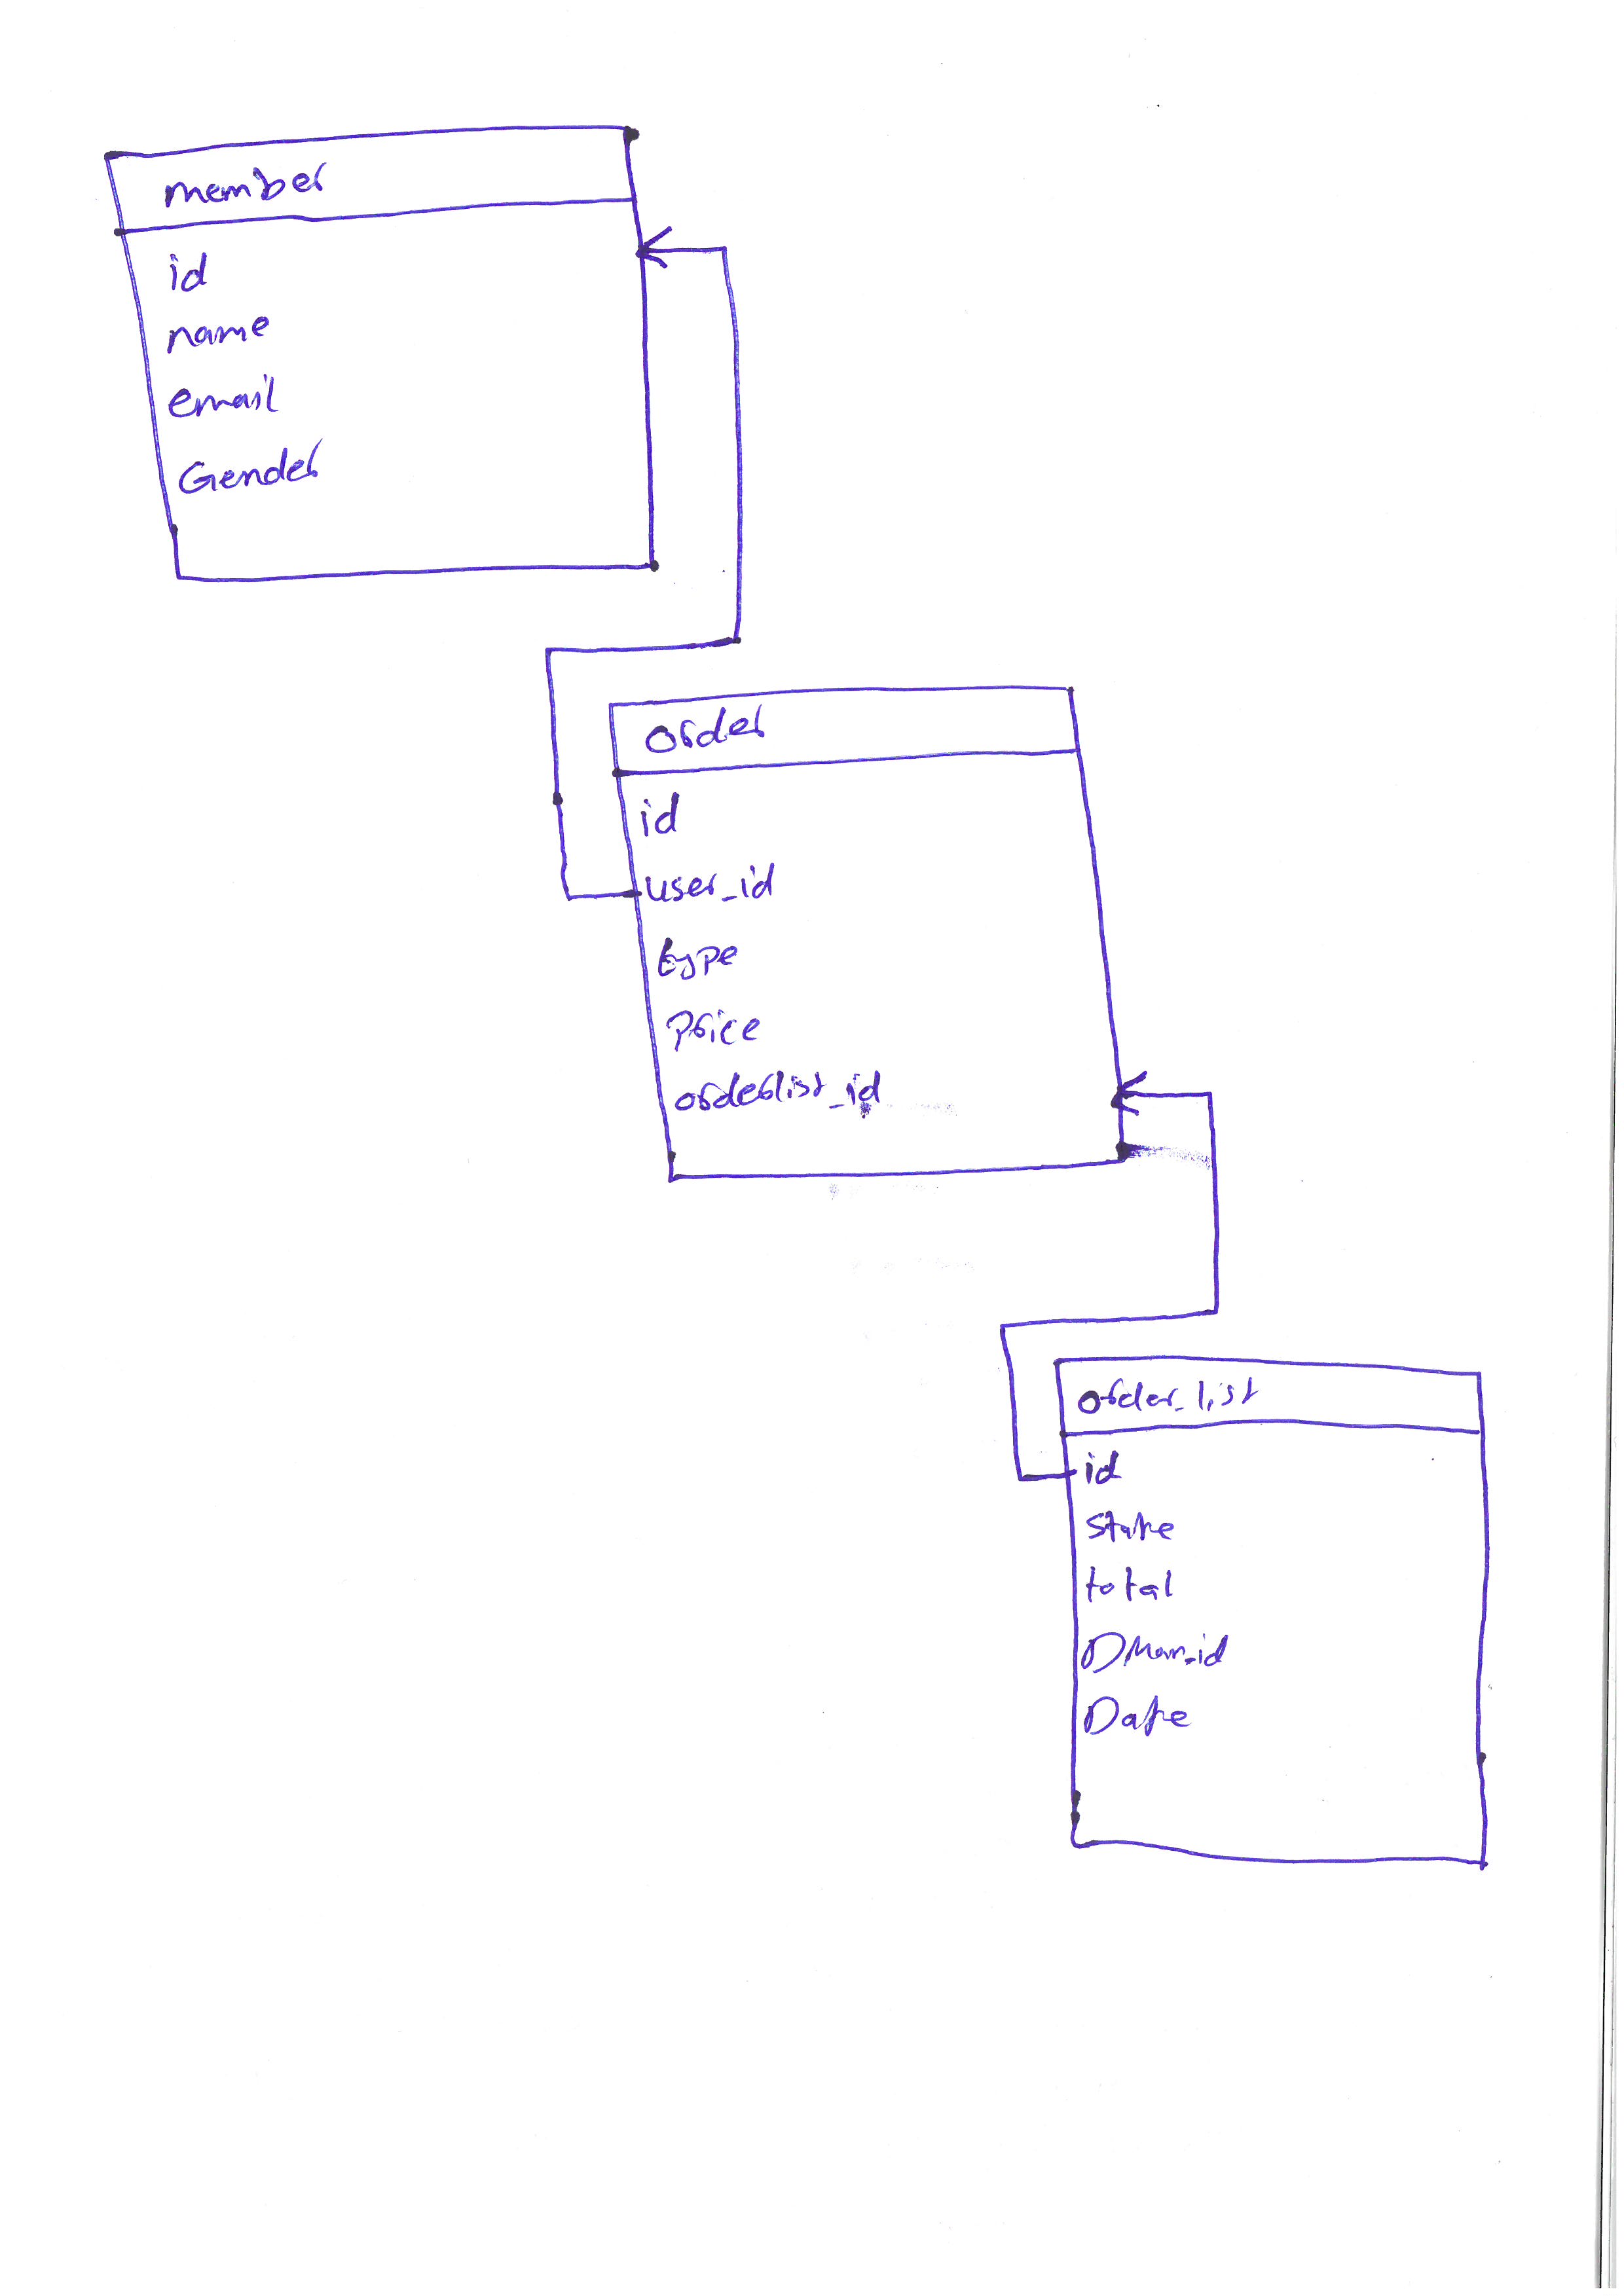 member
id
name
email
Gender
order
id
user_id
type
Price
orderlist_id
order_list
id
State
total
DMan_id
Date